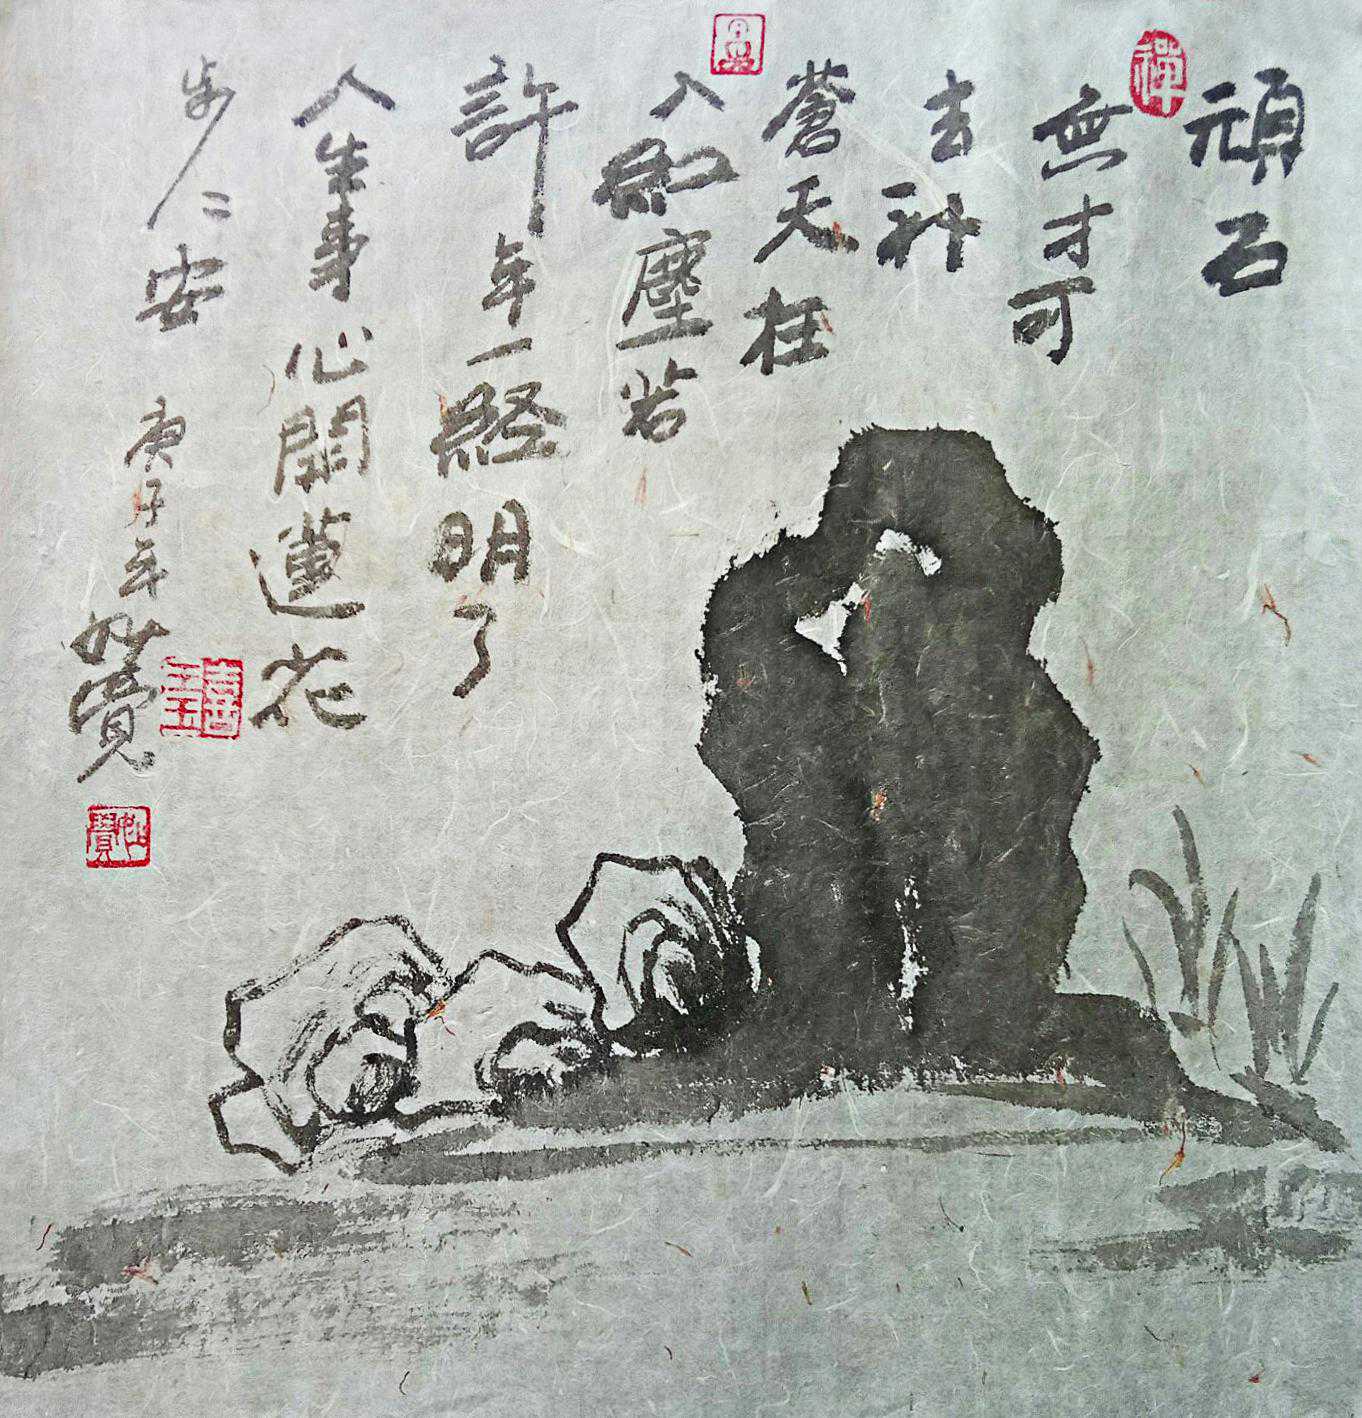 頑石
無才可
去补
蒼天枉
入紅塵若
許年一經明了
人生事心開蓮花
步〻安
庚子年妙覺
禪
妙覺